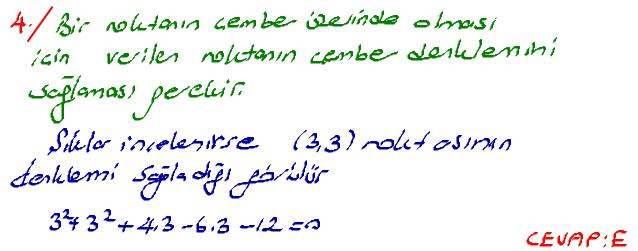 4./ Bir noktanın çember üzerinde olması
için verilen noktanın çember denklemini
sağlaması gerekir.
Şıklar incelenirse (3,3) noktasının
denklemi sağladığı görülür
3²+3²+4.3-6.3-12=0
CEVAP:E